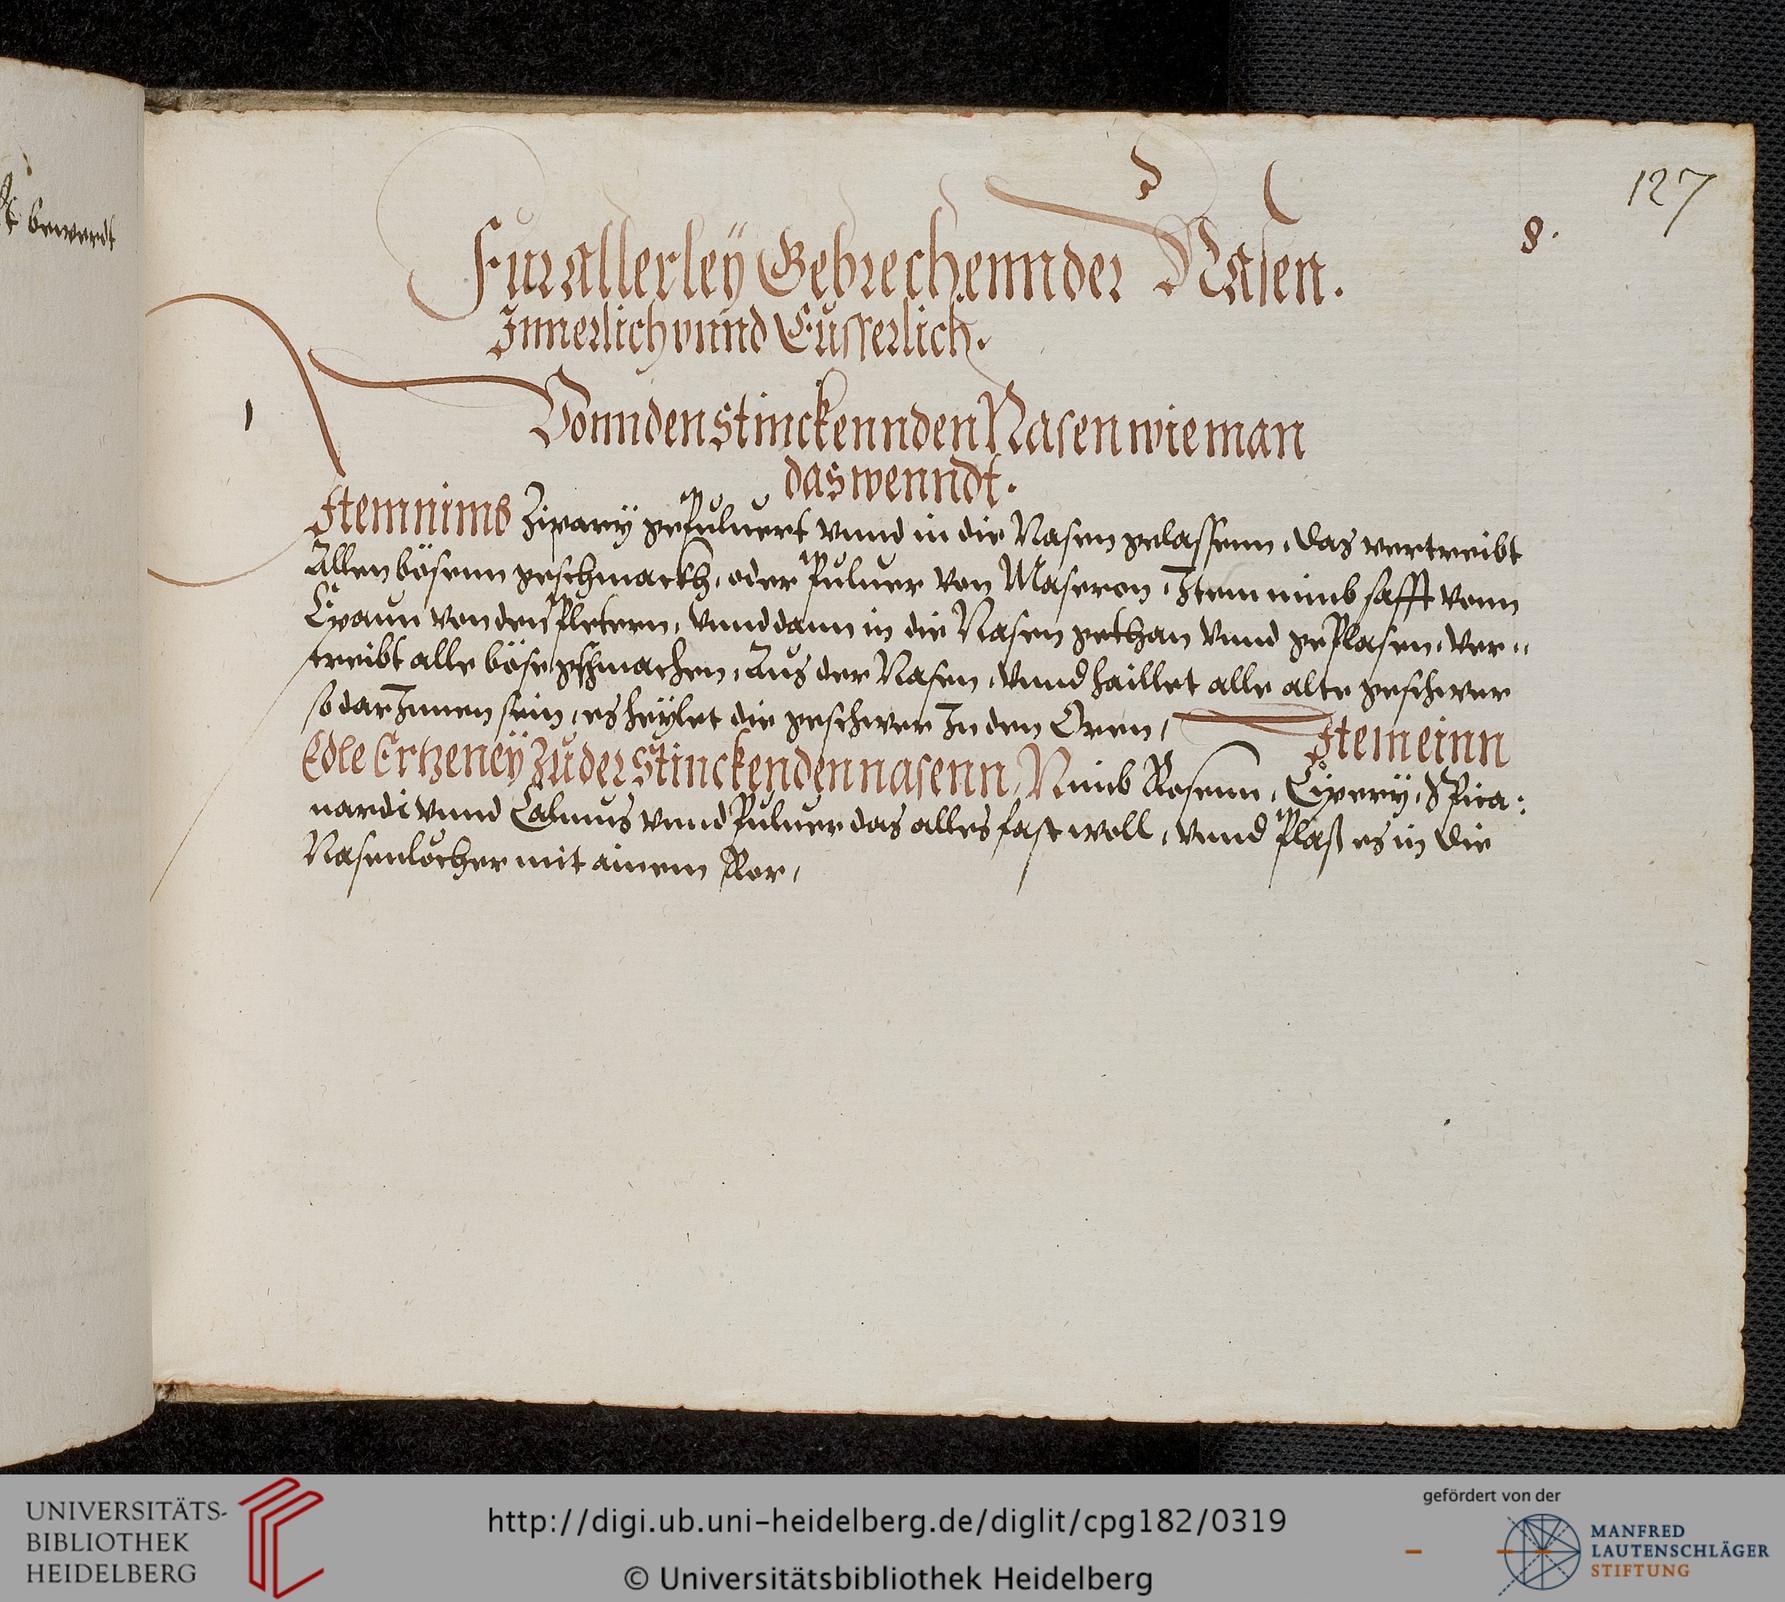 127
8.
bewerdt
Fur allerley Gebrechenn der Nasen.
Innerlich vnnd Eusserlich.
1
Vonn den stinckennden Nasen wie man
das wenndt.
Item nimb Zipary gepuluert vnnd in die Nasen gelassenn, das vertreibt
Allen bösenn geschmackh, oder Puluer von Maseron, Item nimb safft vonn
von den Pletern, vnnd dann in die Nasen gethan vnnd gePlasen, ver¬
treibt alle böse gschmachen, Aus der Nasen, vnnd haillet alle alte geschwer
so dar Innen sein, es heylet die geschwer In den Oren,
Item einn
Edle Ertzeney zu der stinckenden nasenn, Nimb Rosenn, Cipery, Spica:
nardi vnnd Calmus vnnd Puluer das alles fast woll, vnnd Plaß es in die
Nasenlöcher mit ainem Ror,
UNIVERSITÄTS-
BIBLIOTHEK
HEIDELBERG
http://digi.ub.uni-heidelberg.de/diglit/cpg182/0319
© Universitätsbibliothek Heidelberg
gefördert von der
MANFRED
LAUTENSCHLÄGER
STIFTUNG